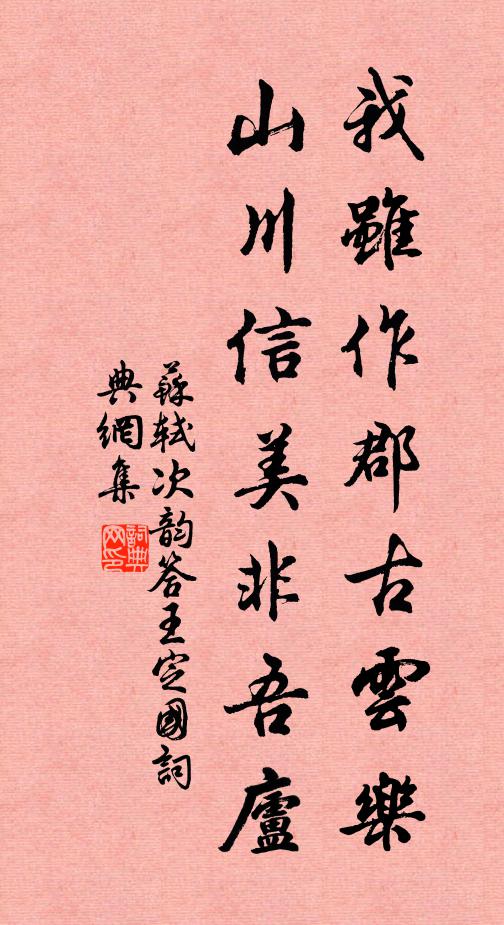 我雖作郡古雲樂
山川信美非吾廬
蘇軾次韵答王定國詞
典網集
詞典
网印